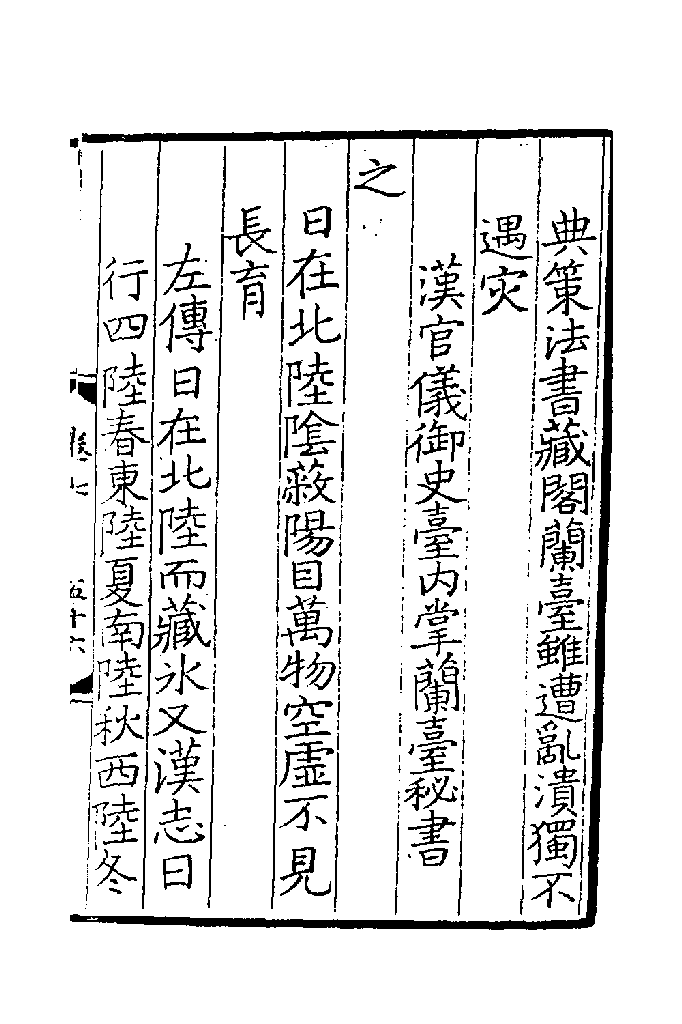 典策法書藏閣蘭臺雖遭亂潰獨不
遇灾
漢官儀御史臺内掌蘭臺秘書
之
日在北陸陰蔽陽目萬物空虛不見
長育
左傳日在北陸而藏氷又漢志日
行四陸春東陸夏南陸秋西陸冬
五十六